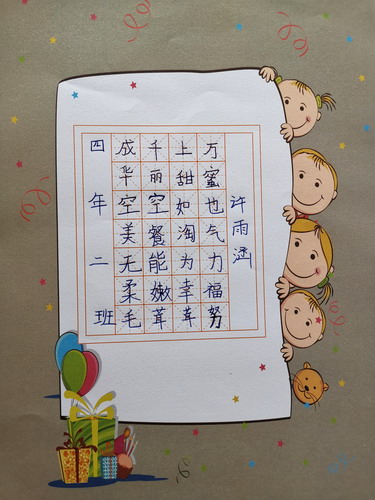 四年二班
成千上万
华丽甜蜜
空空如也
美餐淘气
无能为力
柔嫩幸福
毛茸茸努
许雨涵